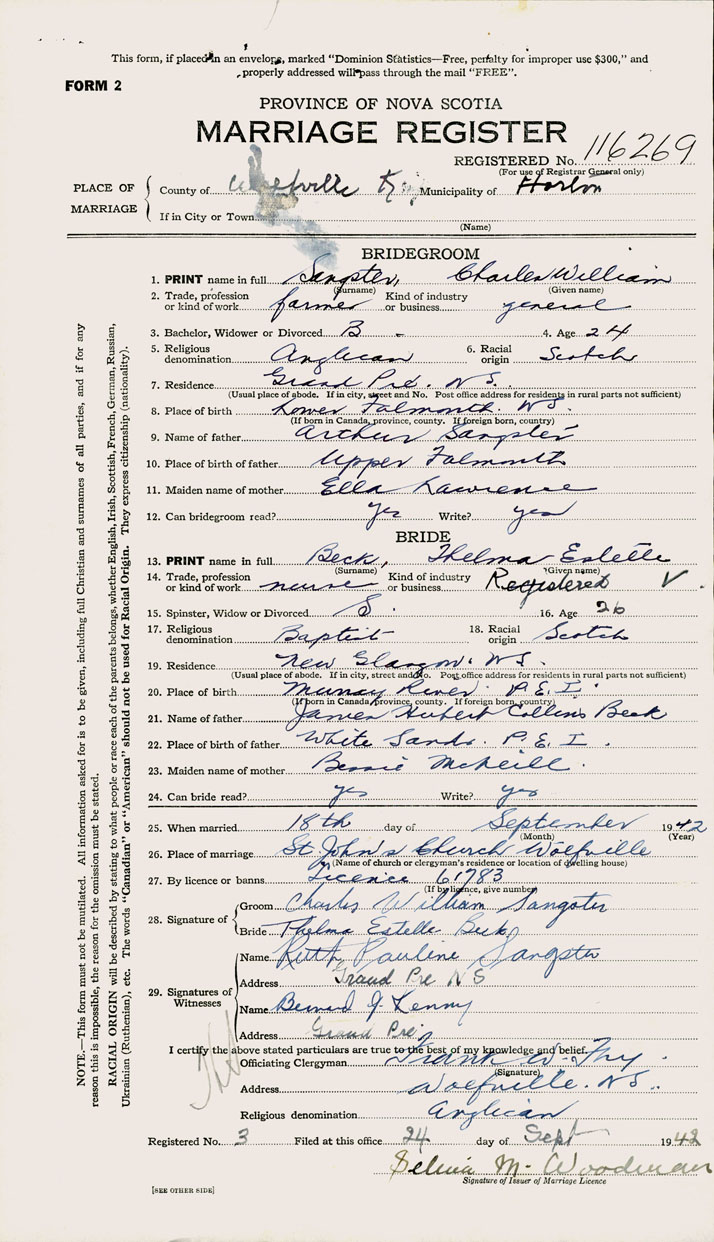 This form, if placed in an envelope, marked "Dominion Statistics—Free, penalty for improper use $300," and
properly addressed will pass through the mail "FREE".
FORM 2
PROVINCE OF NOVA SCOTIA
MARRIAGE REGISTER
REGISTERED No. 116269
(For use of Registrar General only)
PLACE OF MARRIAGE
County of Municipality of Horton
If in City or Town
(Name)
BRIDEGROOM
1. PRINT name in full Sangster, Charles William
(Surname) (Given name)
2. Trade, profession or kind of work farmer Kind of industry or business general
3. Bachelor, Widower or Divorced B - 4. Age 24
5. Religious denomination Anglican 6. Racial origin Scotch
7. Residence Grand Pré. N.S.
(Usual place of abode. If in city, street and No. Post office address for residents in rural parts not sufficient)
8. Place of birth Lower Falmouth. N.S.
(If born in Canada, province, county. If foreign born, country)
9. Name of father Arthur Sangster
10. Place of birth of father Upper Falmouth
11. Maiden name of mother Ella Lawrence
12. Can bridegroom read? yes Write? yes
BRIDE
13. PRINT name in full Beck, Thelma Estelle
(Surname) (Given name)
14. Trade, profession or kind of work nurse Kind of industry or business Registered ✓
15. Spinster, Widow or Divorced S. 16. Age 26
17. Religious denomination Baptist 18. Racial origin Scotch
19. Residence New Glasgow. N.S.
(Usual place of abode. If in city, street and No. Post office address for residents in rural parts not sufficient)
20. Place of birth Murray River. P.E.I.
(If born in Canada, province, county. If foreign born, country)
21. Name of father James Hubert Collins Beck
22. Place of birth of father White Sands. P.E.I.
23. Maiden name of mother Bessie McNeill.
24. Can bride read? yes Write? yes
25. When married 18th day of September 1942
(Month) (Year)
26. Place of marriage St. John's Church Wolfville
(Name of church or clergyman's residence or location of dwelling house)
27. By licence or banns Licence 61783
(If by licence, give number)
28. Signature of
Groom Charles William Sangster
Bride Thelma Estelle Beck
29. Signatures of Witnesses
Name Ruth Pauline Sangster
Address Grand Pre N S
Name Bernard J.
Address Grand Pre
I certify the above stated particulars are true to the best of my knowledge and belief.
Officiating Clergyman Frank W.
(Signature)
Address Wolfville. N.S.
Religious denomination Anglican
Registered No. 3 Filed at this office 24 day of Sept 1942
Selina M. Woodman
Signature of Issuer of Marriage Licence
[SEE OTHER SIDE]
NOTE.—This form must not be mutilated. All information asked for is to be given, including full Christian and surnames of all parties, and if for any
reason this is impossible, the reason for the omission must be stated.
RACIAL ORIGIN will be described by stating to what people or race each of the parents belongs, whether English, Irish, Scottish, French, German, Russian,
Ukrainian (Ruthenian), etc. The words "Canadian" or "American" should not be used for Racial Origin. They express citizenship (nationality).